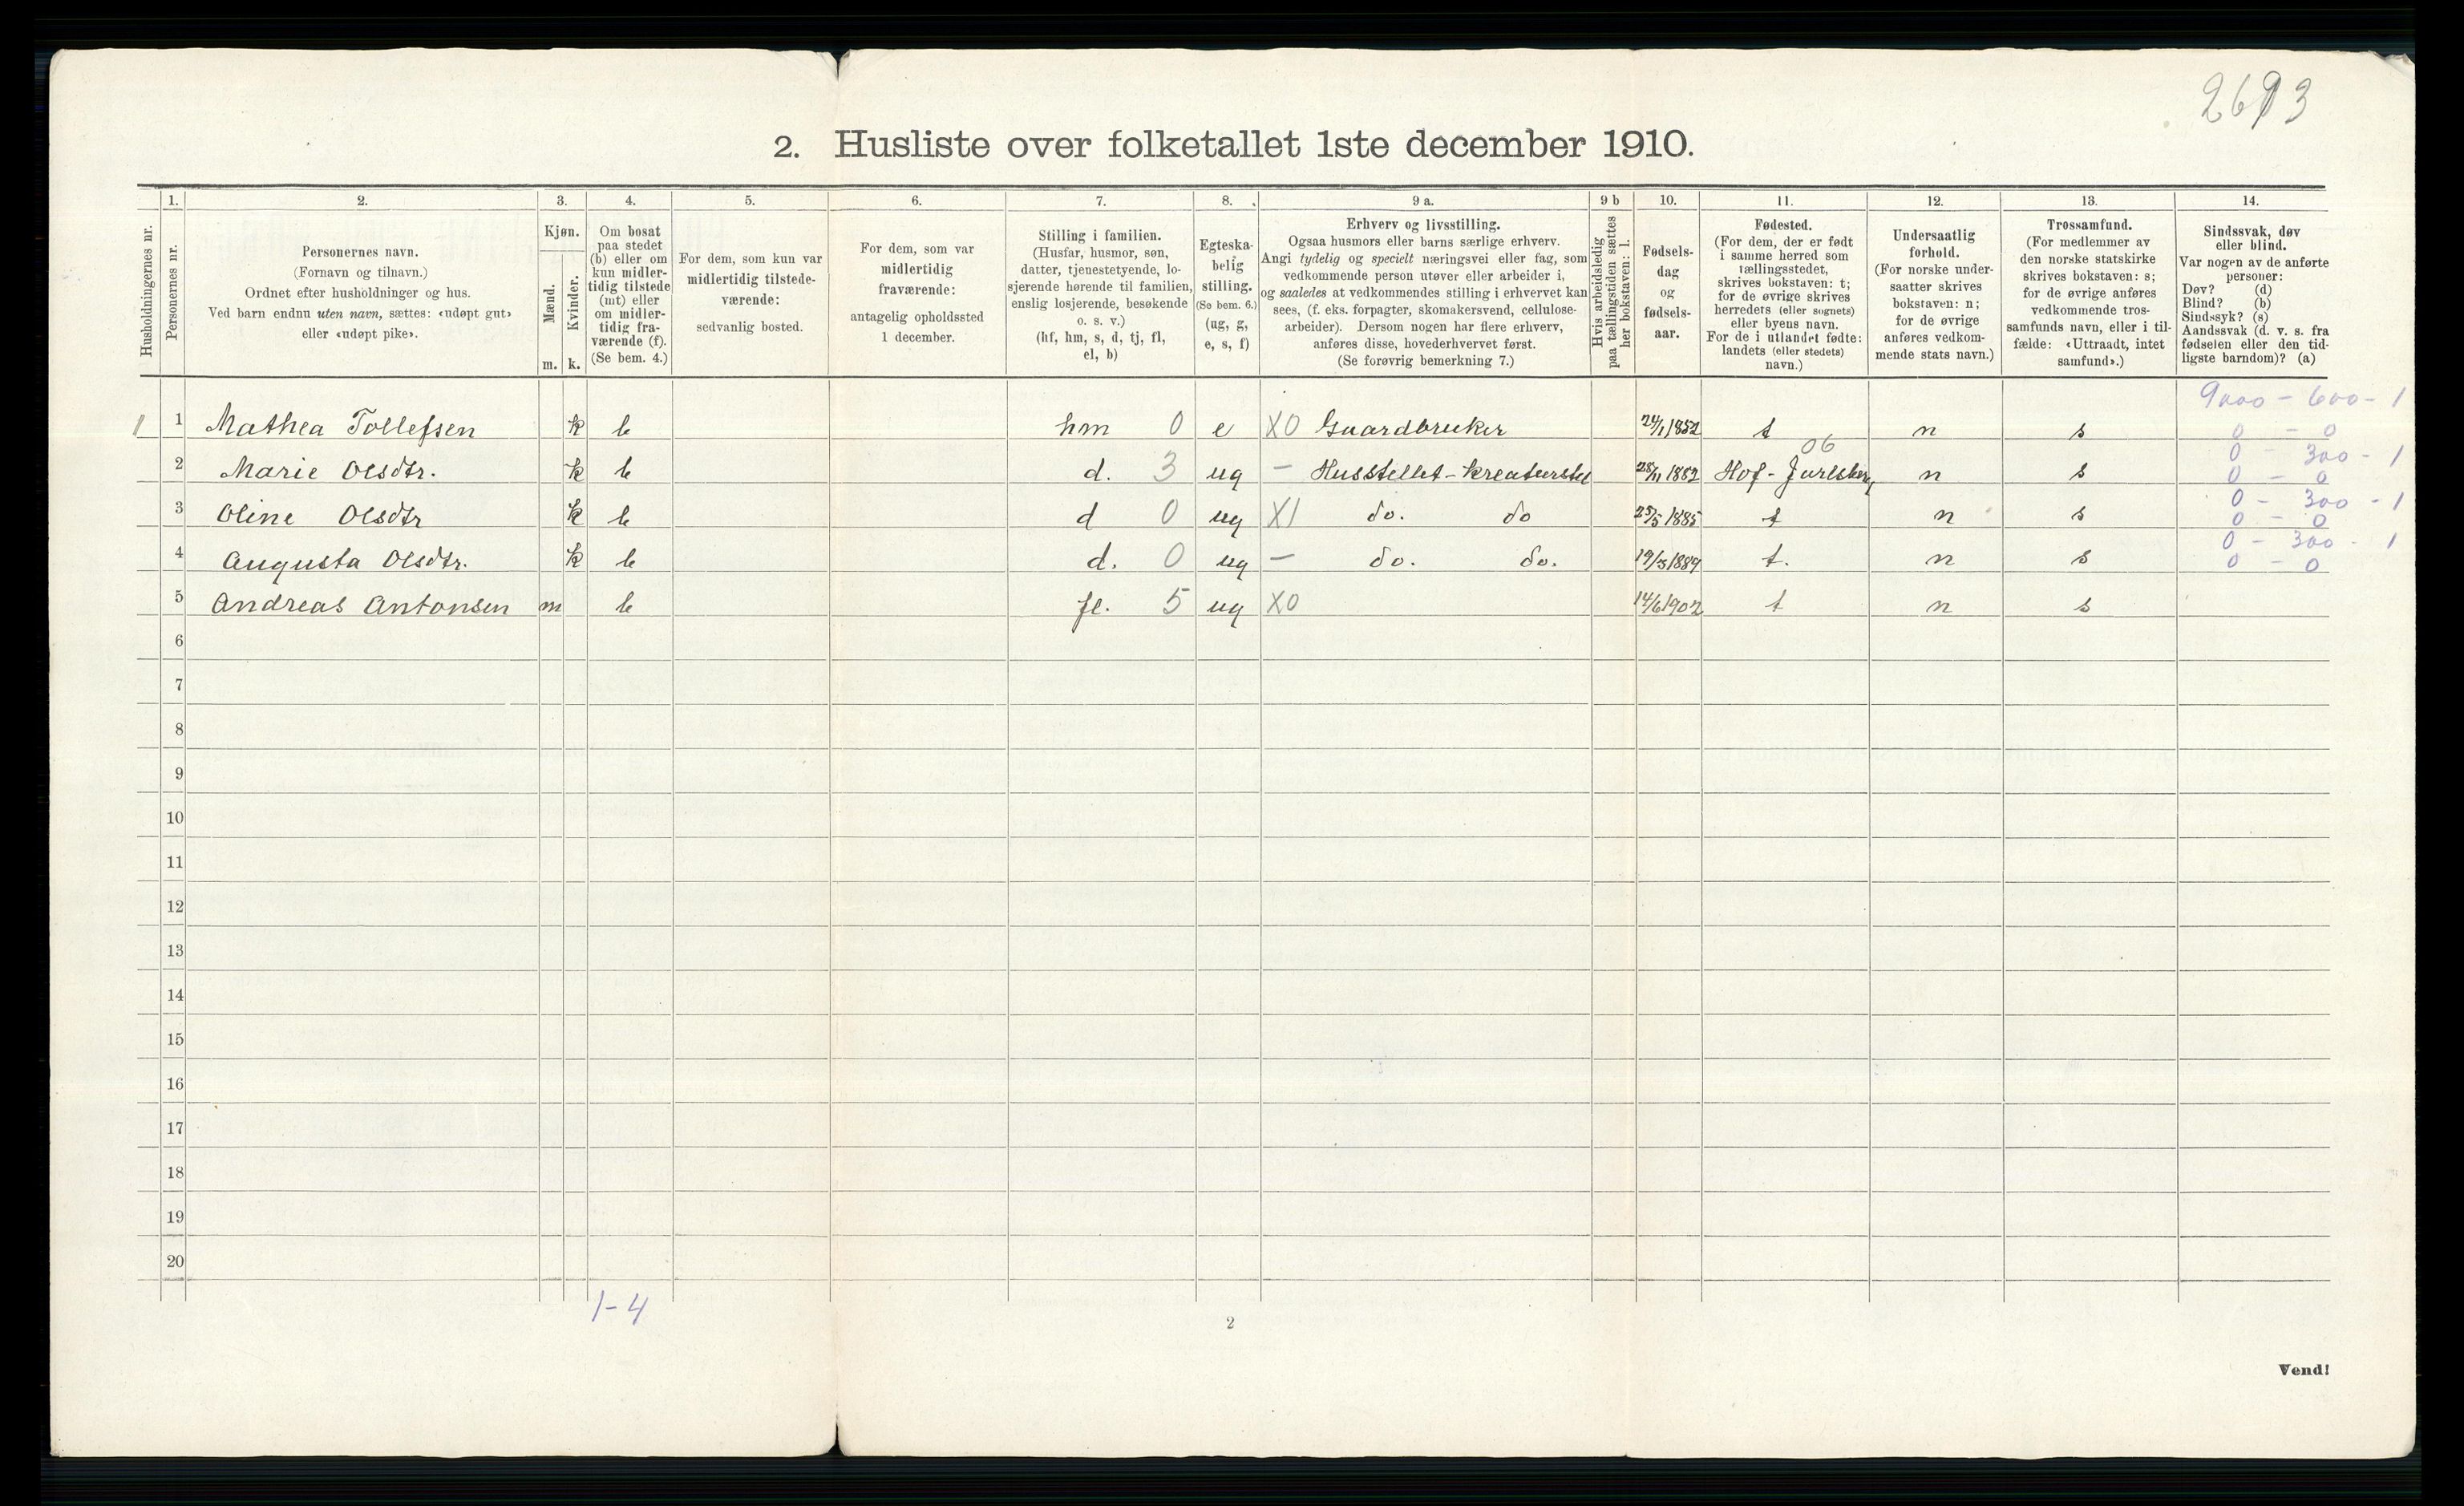 2693
2. Husliste over folketallet 1ste december 1910.
Husholdningernes nr.
1.
Personernes nr.
2.
Personernes navn.
(Fornavn og tilnavn.)
Ordnet efter husholdninger og hus.
Ved barn endnu uten navn, sættes: «udøpt gut»
eller «udøpt pike».
3.
Kjøn.
Mænd.
Kvinder.
m. k.
4.
Om bosat
paa stedet
(b) eller om
kun midler-
tidig tilstede
(mt) eller
om midler-
tidig fra-
værende (f).
(Se bem. 4.)
5.
For dem, som kun var
midlertidig tilstede-
værende:
sedvanlig bosted.
6.
For dem, som var
midlertidig
fraværende:
antagelig opholdssted
1 december.
7.
Stilling i familien.
(Husfar, husmor, søn,
datter, tjenestetyende, lo-
sjerende hørende til familien,
enslig losjerende, besøkende
o. s. v.)
(hf, hm, s, d, tj, fl,
el, b)
8.
Egteska-
belig
stilling.
(Se bem. 6.)
(ug, g,
e, s, f)
9 a.
Erhverv og livsstilling.
Ogsaa husmors eller barns særlige erhverv.
Angi tydelig og specielt næringsvei eller fag, som
vedkommende person utøver eller arbeider i,
og saaledes at vedkommendes stilling i erhvervet kan
sees, (f. eks. forpagter, skomakersvend, cellulose-
arbeider). Dersom nogen har flere erhverv,
anføres disse, hovederhvervet først.
(Se forøvrig bemerkning 7.)
9 b
Hvis arbeidsledig
paa tællingstiden sættes
her bokstaven: l.
10.
Fødsels-
dag
og
fødsels-
aar.
11.
Fødested.
(For dem, der er født
i samme herred som
tællingsstedet,
skrives bokstaven: t;
for de øvrige skrives
herredets (eller sognets)
eller byens navn.
For de i utlandet fødte:
landets (eller stedets)
navn.)
12.
Undersaatlig
forhold.
(For norske under-
saatter skrives
bokstaven: n;
for de øvrige
anføres vedkom-
mende stats navn.)
13.
Trossamfund.
(For medlemmer av
den norske statskirke
skrives bokstaven: s;
for de øvrige anføres
vedkommende tros-
samfunds navn, eller i til-
fælde: «Uttraadt, intet
samfund».)
14.
Sindssvak, døv
eller blind.
Var nogen av de anførte
personer:
Døv? (d)
Blind? (b)
Sindssyk? (s)
Aandssvak (d. v. s. fra
fødselen eller den tid-
ligste barndom)? (a)
9000 - 600 - 1
1 1 Mathea Tollefsen k b hm 0 e X0 Guardbruker 24/1 1852 t n s 0 - 0
06 0 - 300 - 1
2 Marie Olsdtr. k b d. 3 ug - Husstellet-kreaturstel 28/11 1882 Hof-Jarlsberg n s 0 - 0
0 - 300 - 1
3 Oline Olsdtr k b d 0 ug X1 do. do 25/5 1885 t n s 0 - 0
0 - 300 - 1
4 Augusta Olsdtr. k b d. 0 ug - do. do. 19/3 1889 t. n s 0 - 0
5 Andreas Antonsen m b fl. 5 ug X0 14/6 1902 t n s
6
7
8
9
10
11
12
13
14
15
16
17
18
19
20
1-4
2
Vend!